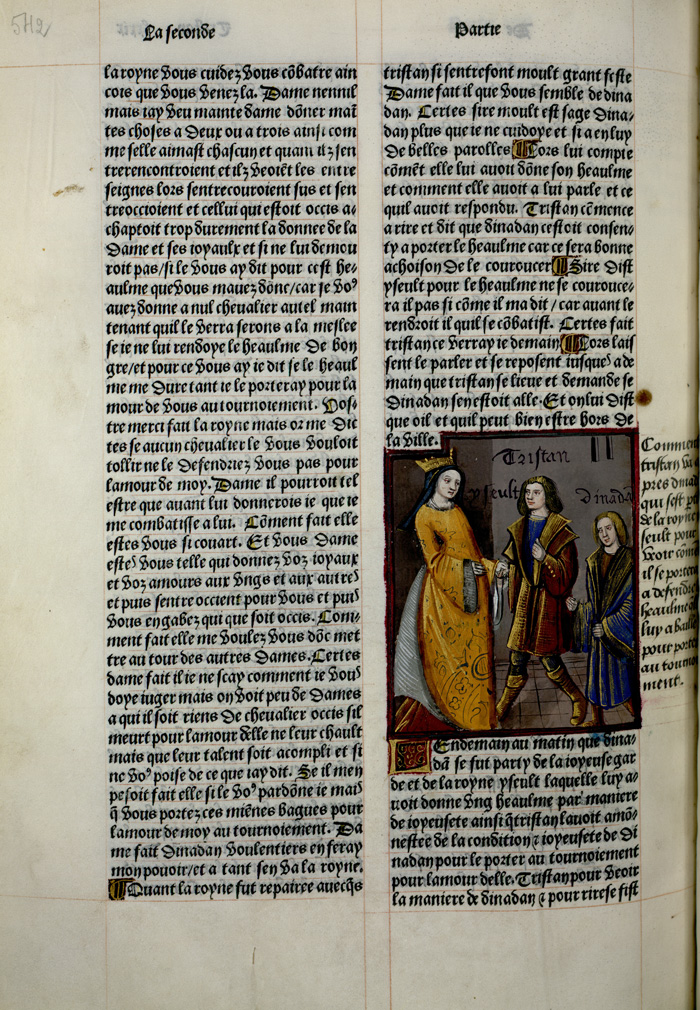 5H2
La seconde
Partie
la royne Vous cuidez Vous cõbatre ain
cois que Vous venez la. Dame nennil
mais iay veu mainte dame dõner mait
tes choses a deux ou a trois ainsi com
me selle aimast chascun et quant ilz sen
trerencontroient et ilz veoiẽt les entre
seignes lors sentrecouroient sus et sen
treoccioient et cellui qui estoit occis a⸗
chaptoit trop durement la donnee de la
Dame et ses ioyaulx et si ne lui demou
roit pas/si le Vous ay dit pour cest he⸗
aulme que Vous mauez dõne/car se Voꝰ
auez donne a nul cheualier autel main
tenant quil le verra serons a la meslee
se ie ne lui rendoye le heaulme De bon
gre/et pour ce Vous ay ie dit se le heaul
me me dure tant ie le porteray pour la
mour de Vous au tournoiement. Vos⸗
tre merci fait la royne mais or me Dic
tes se aucun cheualier le Vous Vouloit
tollir ne le Deffendriez Vous pas pour
lamour de moy. Dame il pourroit tel
estre que auant lui donnerois ie que ie
me combatisse a lui. Cõment fait elle
estes Vous si couart. Et Vous Dame
esteˢ Vous telle qui donnez Voz ioyaux
et Voz amours aux Vngs et aux autreˢ
et puis sentre occient pour Vous et puiˢ
Vous engabez qui que soit occis. Com⸗
ment fait elle me Voulez Vous dõc met
tre au tour des autres Dames. Certes
dame fait il ie ne scay comment ie Vouˢ
doye iuger mais on Voit peu de Dames
a qui il soit riens de cheualier occis sil
meurt pour lamour delle ne leur chault
mais que leur talent soit acompli et si
ne Voꝰ poise de ce que iay dit. Se il men
pesoit fait elle si le Voꝰ pardõne ie maiˢ
q̃ Vous portez ces miẽnes bagues pour
lamour de moy au tournoiement. Da
me fait Dinadan Voulentiers en feray
mon pouoir/et a tant sen Va la royne.
Quant la royne fut repairee auecq̃s
tristan si sentrefont moult grant feste
Dame fait il que Vous semble de dina
dan. Certes sire moult est sage Dina⸗
dan plus que ie ne cuidoye et si a en luy
De belles parolles Lors lui compte
cõmẽt elle lui auoit dõne son heaulme
et comment elle auoit a lui parle et ce
quil auoit respondu. Tristan cõmence
a rire et dit que dinadan cestoit consen⸗
ty a porter le heaulme car ce sera bonne
achoison De le couroucer Sire Dist
yseult pour le heaulme ne se courouce⸗
ra il pas si cõme il ma dit / car auant le
rendroit il quil se cõbatist. Certes fait
tristan ce Verray ie demain Lors lais
sent le parler et se reposent iusqueˢ a de
main que tristan se lieue et demande se
Dinadan sen estoit alle. Et on lui Dist
que oil et quil peut bien estre hors De
la Ville.
Tristan
yseult
Dinadã
Comment
tristan va a
pres dina
qui sest p
de la royn
seult pour
veoir com
il se porter
a defendre
heaulme
luy a baill
pour porte
au tournoi
ment.
Lendemain au matin que dina⸗
dã se fut party de la ioyeuse gar
de et de la royne yseult laquelle luy a⸗
uoit donne Vng heaulme par maniere
de ioyeusete ainsi q̃ tristan lauoit amõ⸗
nestee de la condition ⁊ ioyeusete de Di
nadan pour le porter au tournoiement
pour lamour delle. Tristan pour Veoir
la maniere de dinadan ⁊ pour rire se fist